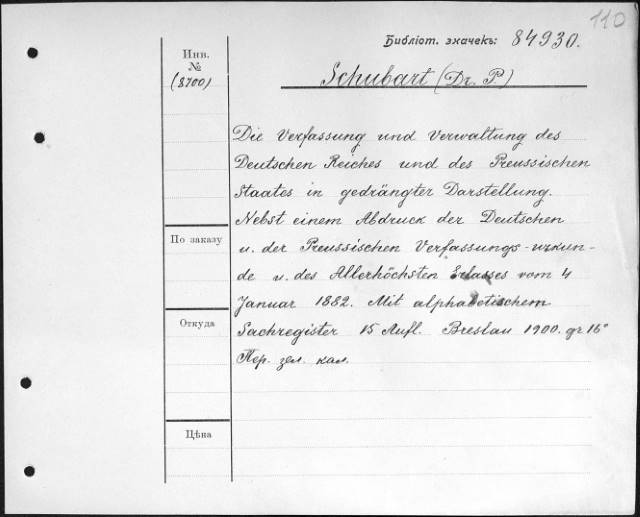 110
Библіот. значекъ: 84930.
Инв.
№
(8700)
Schubart (Dr. P.)
Die Verfassung und Verwaltung des
Deutschen Reiches und des Preussischen
Staates in gedrängter Darstellung.
Nebst einem Abdruck der Deutschen
u. der Preussischen Verfassungs-urkun-
de u. des Allerhöchsten Erlasses vom 4
Januar 1882. Mit alphabetischem
Sachregister 15 Aufl. Breslau 1900. gr 16°
Пер. зел. кал.
По заказу
Откуда
Цѣна